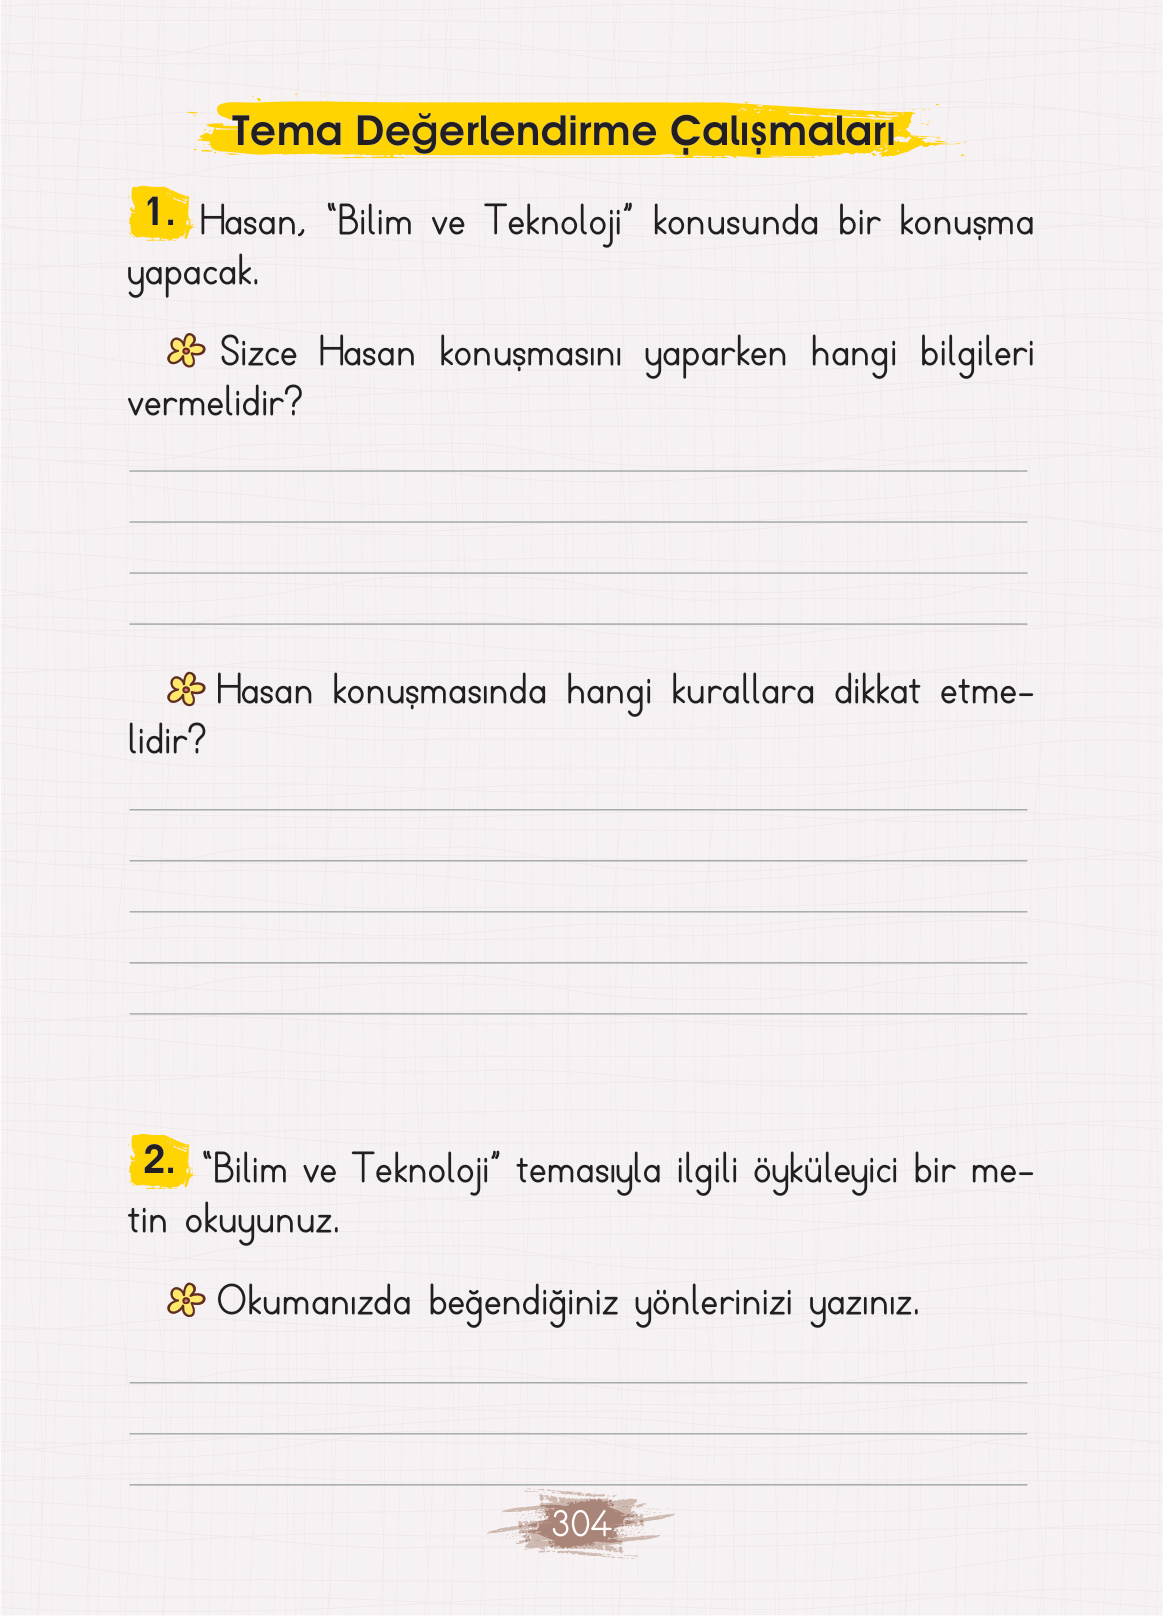 Tema Değerlendirme Çalışmaları
1. Hasan, “Bilim ve Teknoloji” konusunda bir konuşma
yapacak.
Sizce Hasan konuşmasını yaparken hangi bilgileri
vermelidir?
Hasan konuşmasında hangi kurallara dikkat etme-
lidir?
2. “Bilim ve Teknoloji” temasıyla ilgili öyküleyici bir me-
tin okuyunuz.
Okumanızda beğendiğiniz yönlerinizi yazınız.
304